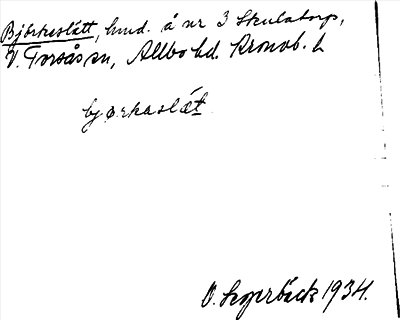 Björkeslätt, hmd. å nr 3 Skulatorp,
V. Torsås sn, Allbo hd. Kronob. l
bjørkaslæt
O. 1934.